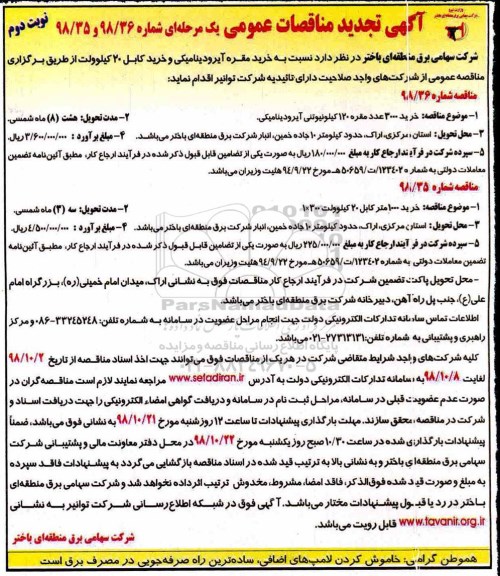 آگهی تجدید مناقصات عمومی یک مرحله‌ای شماره ۹۸/۳۶ و ۹۸/۳۵
نوبت دوم
شرکت سهامی برق منطقه‌ای باختر در نظر دارد نسبت به خرید مقره آیرودینامیکی و خرید کابل ۲۰ کیلوولت از طریق برگزاری
مناقصه عمومی از شرکت‌های واجد صلاحیت دارای تائیدیه شرکت توانیر اقدام نماید:
مناقصه شماره ۹۸/۳۶
۱- موضوع مناقصه: خرید ۳۰۰ عدد مقره ۱۲۰ کیلونیوتنی آیرودینامیکی. ۲- مدت تحویل: هشت (۸) ماه شمسی.
۳- محل تحویل: استان مرکزی، اراک، حدود کیلومتر ۱۰ جاده خمین، انبار شرکت برق منطقه‌ای باختر می‌باشد. ۴- مبلغ برآورد : ۳/۶۰۰/۰۰۰/۰۰۰ ریال.
۵- سپرده شرکت در فرآیند ارجاع کار به مبلغ ۱۸۰/۰۰۰/۰۰۰ ریال به صورت یکی از تضامین قابل قبول ذکر شده در فرآیند ارجاع کار، مطابق آئین‌نامه تضمین
معاملات دولتی به شماره ۱۲۳۴۰۲/ت۵۰۶۵۹هـ مورخ ۹۴/۹/۲۲ هئیت وزیران می‌باشد.
مناقصه شماره ۹۸/۳۵
۱- موضوع مناقصه: خرید ۱۰۰۰ متر کابل ۲۰ کیلوولت ۳۰۰×۱ ۲- مدت تحویل: سه (۳) ماه شمسی.
۳- محل تحویل: استان مرکزی، اراک، حدود کیلومتر ۱۰ جاده خمین، انبار شرکت برق منطقه‌ای باختر می‌باشد. ۴- مبلغ برآورد : ۴/۵۰۰/۰۰۰/۰۰۰ ریال.
۵- سپرده شرکت در فرآیند ارجاع کار به مبلغ ۲۲۵/۰۰۰/۰۰۰ ریال به صورت یکی از تضامین قابل قبول ذکر شده در فرآیند ارجاع کار، مطابق آئین‌نامه
تضمین معاملات دولتی به شماره ۱۲۳۴۰۲/ت۵۰۶۵۹هـ مورخ ۹۴/۹/۲۲ هئیت وزیران می‌باشد.
- محل تحویل پاکت تضمین شرکت در فرآیند ارجاع کار مناقصات فوق به نشانی اراک، میدان امام خمینی(ره)، بزرگراه امام
علی(ع)، جنب پل راه آهن، دبیرخانه شرکت برق منطقه‌ای باختر می‌باشد.
اطلاعات تماس سامانه تدارکات الکترونیکی دولت جهت انجام مراحل عضویت در سامانه به شماره تلفن: ۳۳۲۴۵۲۴۸-۰۸۶ و مرکز
راهبری و پشتیبانی به شماره تلفن: ۲۷۳۱۳۱۳۱-۰۲۱ می‌باشد.
کلیه شرکت‌های واجد شرایط متقاضی شرکت در هر یک از مناقصات فوق می‌توانند جهت اخذ اسناد مناقصه از تاریخ ۹۸/۱۰/۲
لغایت ۹۸/۱۰/۸ به سامانه تدارکات الکترونیکی دولت به آدرس www.setadiran.ir مراجعه نمایند لازم است مناقصه‌گران در
صورت عدم عضویت قبلی در سامانه، مراحل ثبت نام در سامانه و دریافت گواهی امضاء الکترونیکی را جهت دریافت اسناد و
شرکت در مناقصه، محقق سازند. مهلت بارگذاری پیشنهادات تا ساعت ۱۲ روز شنبه مورخ ۹۸/۱۰/۲۱ به نشانی فوق می‌باشد، ضمناً
پیشنهادات بارگذاری شده در ساعت ۱۰/۳۰ صبح روز یکشنبه مورخ ۹۸/۱۰/۲۲ در محل دفتر معاونت مالی و پشتیبانی شرکت
سهامی برق منطقه‌ای باختر و به نشانی بالا به ترتیب قید شده در اسناد مناقصه بازگشایی می‌گردد به پیشنهادات فاقد سپرده
به مبلغ و صورت قید شده فوق‌الذکر، فاقد امضا، مشروط، مخدوش ترتیب اثر داده نخواهد شد و شرکت سهامی برق منطقه‌ای
باختر در رد یا قبول پیشنهادات مختار می‌باشد. آگهی فوق در شبکه اطلاع‌رسانی شرکت توانیر به نشانی
www.tavanir.org.ir قابل رویت می‌باشد.
شرکت سهامی برق منطقه‌ای باختر
هموطن گرامی: خاموش کردن لامپ‌های اضافی، ساده‌ترین راه صرفه‌جویی در مصرف برق است